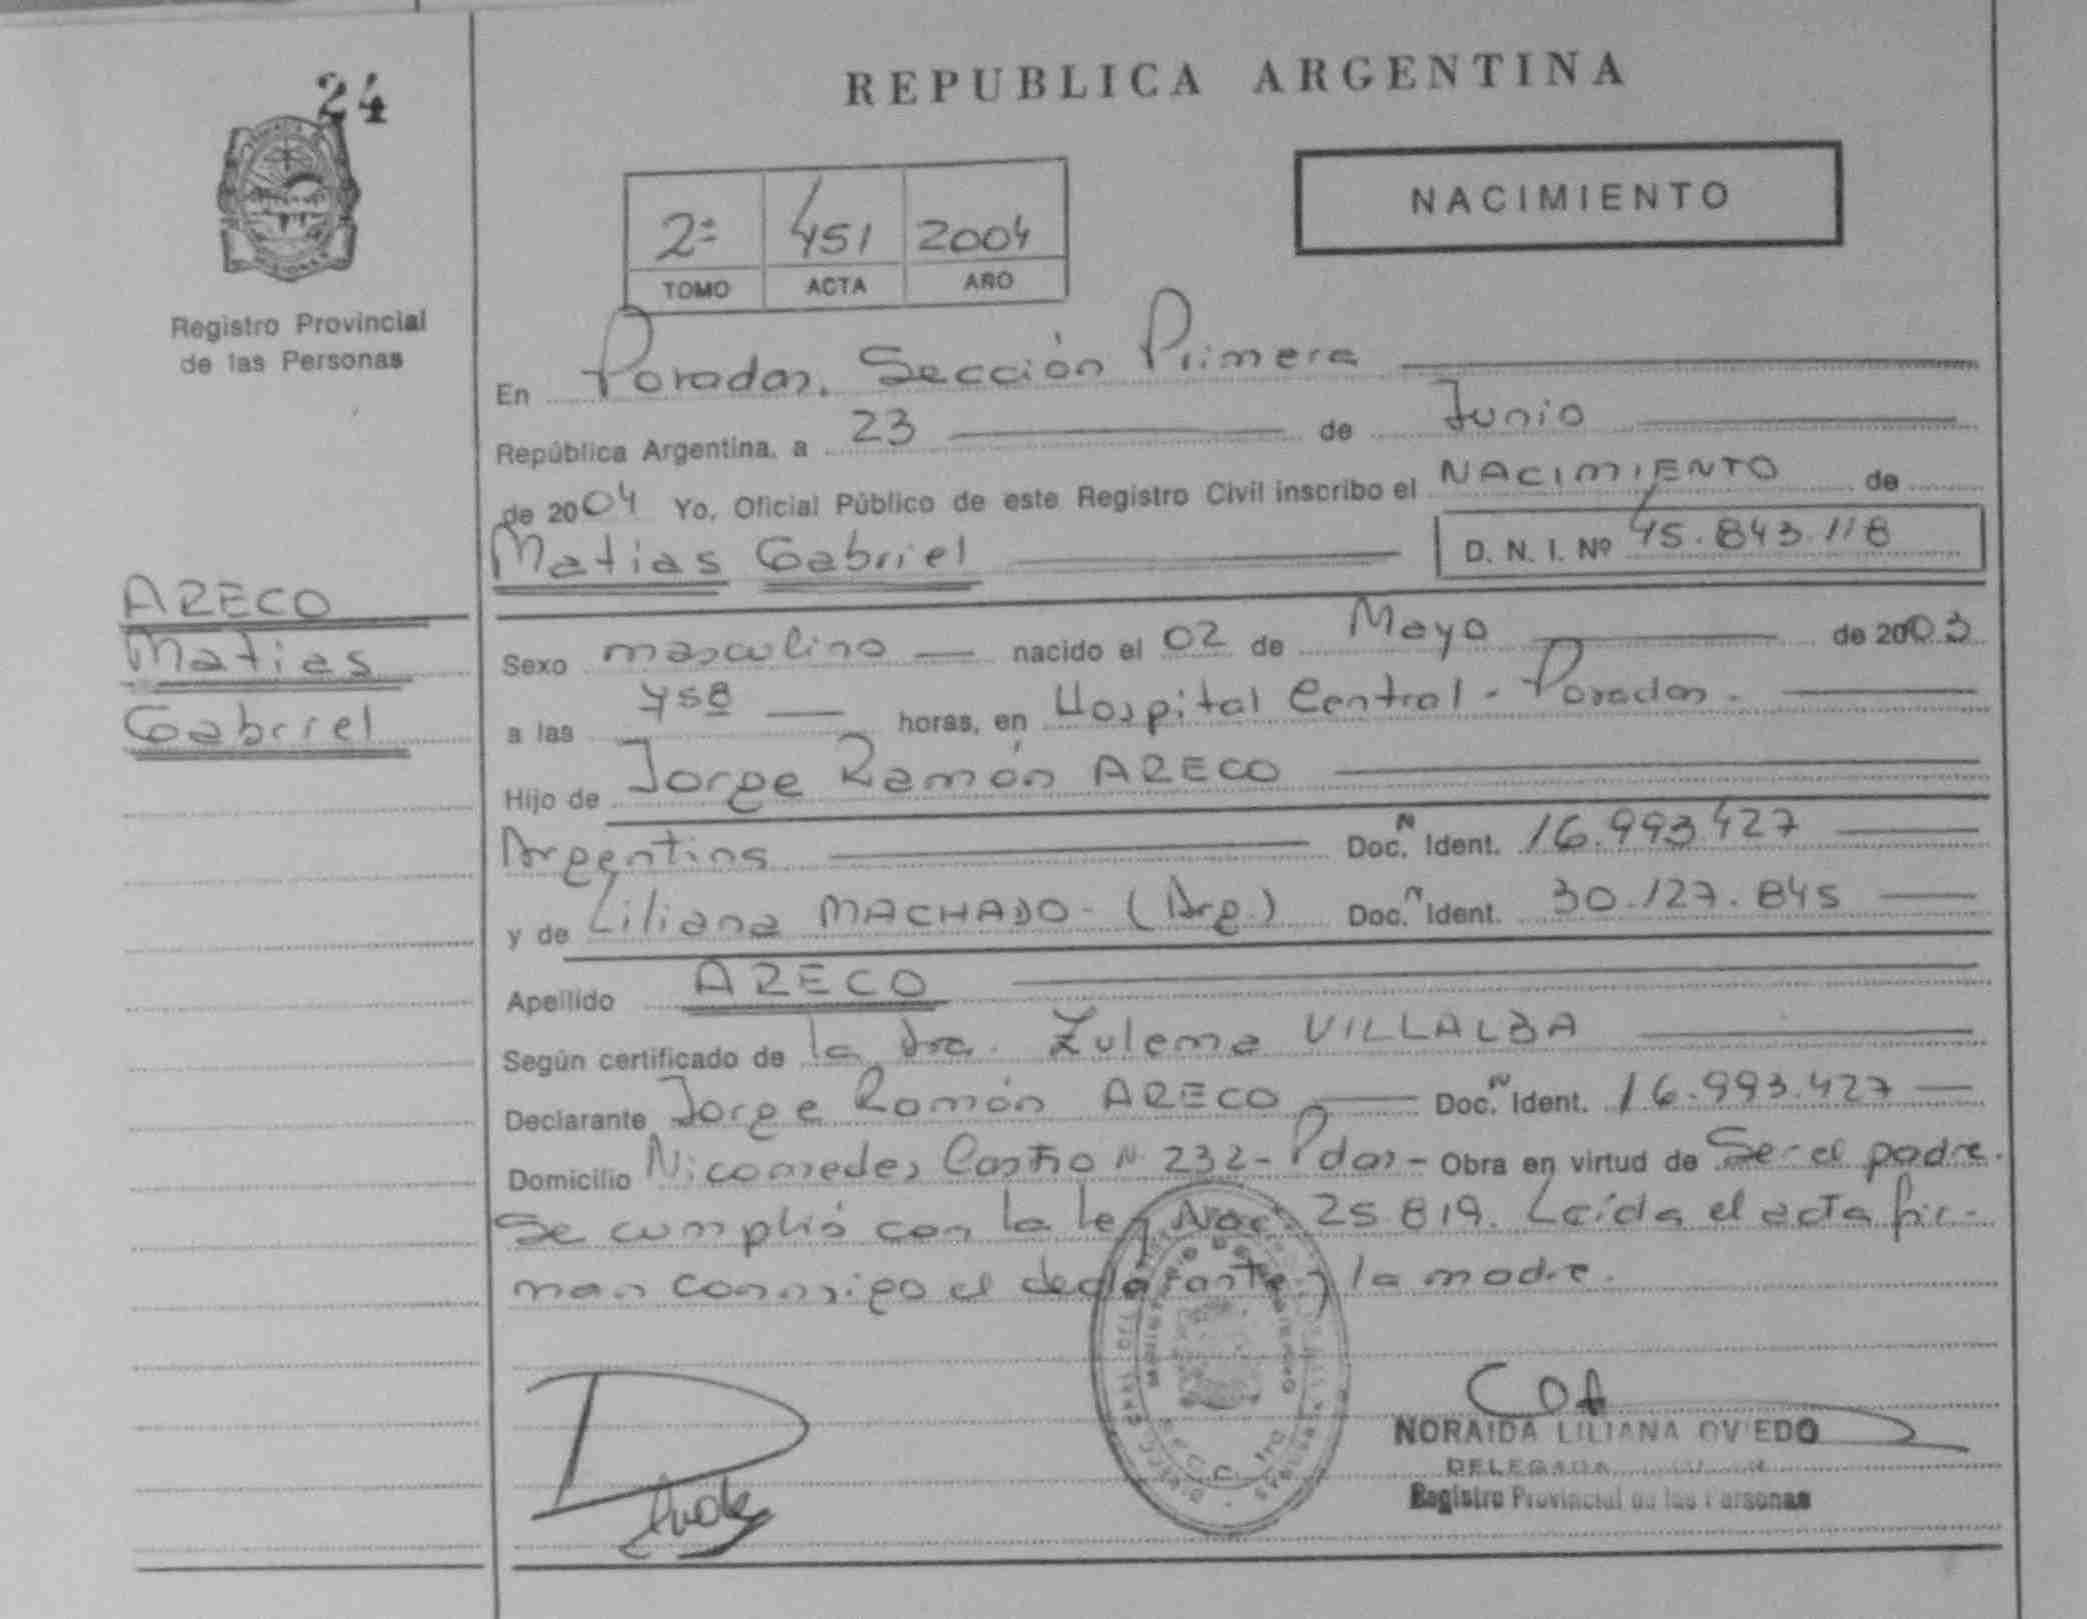 24
REPUBLICA ARGENTINA
NACIMIENTO
2ª 451 2004
TOMO ACTA AÑO
Registro Provincial
de las Personas
En Posadas, Sección Primera
República Argentina, a 23 de Junio
de 2004 Yo, Oficial Público de este Registro Civil inscribo el NACIMIENTO de
Matias Gabriel D. N. I. Nº 45.843.118
ARECO
Matias
Gabriel
Sexo masculino nacido el 02 de Mayo de 2003
a las 458 horas, en Hospital Central - Posadas.
Hijo de Jorge Ramón ARECO
Argentino Doc. N Ident. 16.993.427
y de Liliana MACHADO - (Arg.) Doc. N Ident. 30.127.845
Apellido ARECO
Según certificado de la Dra. Zulema VILLALBA
Declarante Jorge Ramón ARECO Doc. N Ident. 16.993.427
Domicilio Nicomedes Castro N 232 - Pdas - Obra en virtud de Ser el padre.
Se cumplió con la ley Nac. 25.819. Leída el acta fir-
man conmigo el declarante y la madre.
NORAIDA LILIANA OVIEDO
DELEGADA
Registro Provincial de las Personas